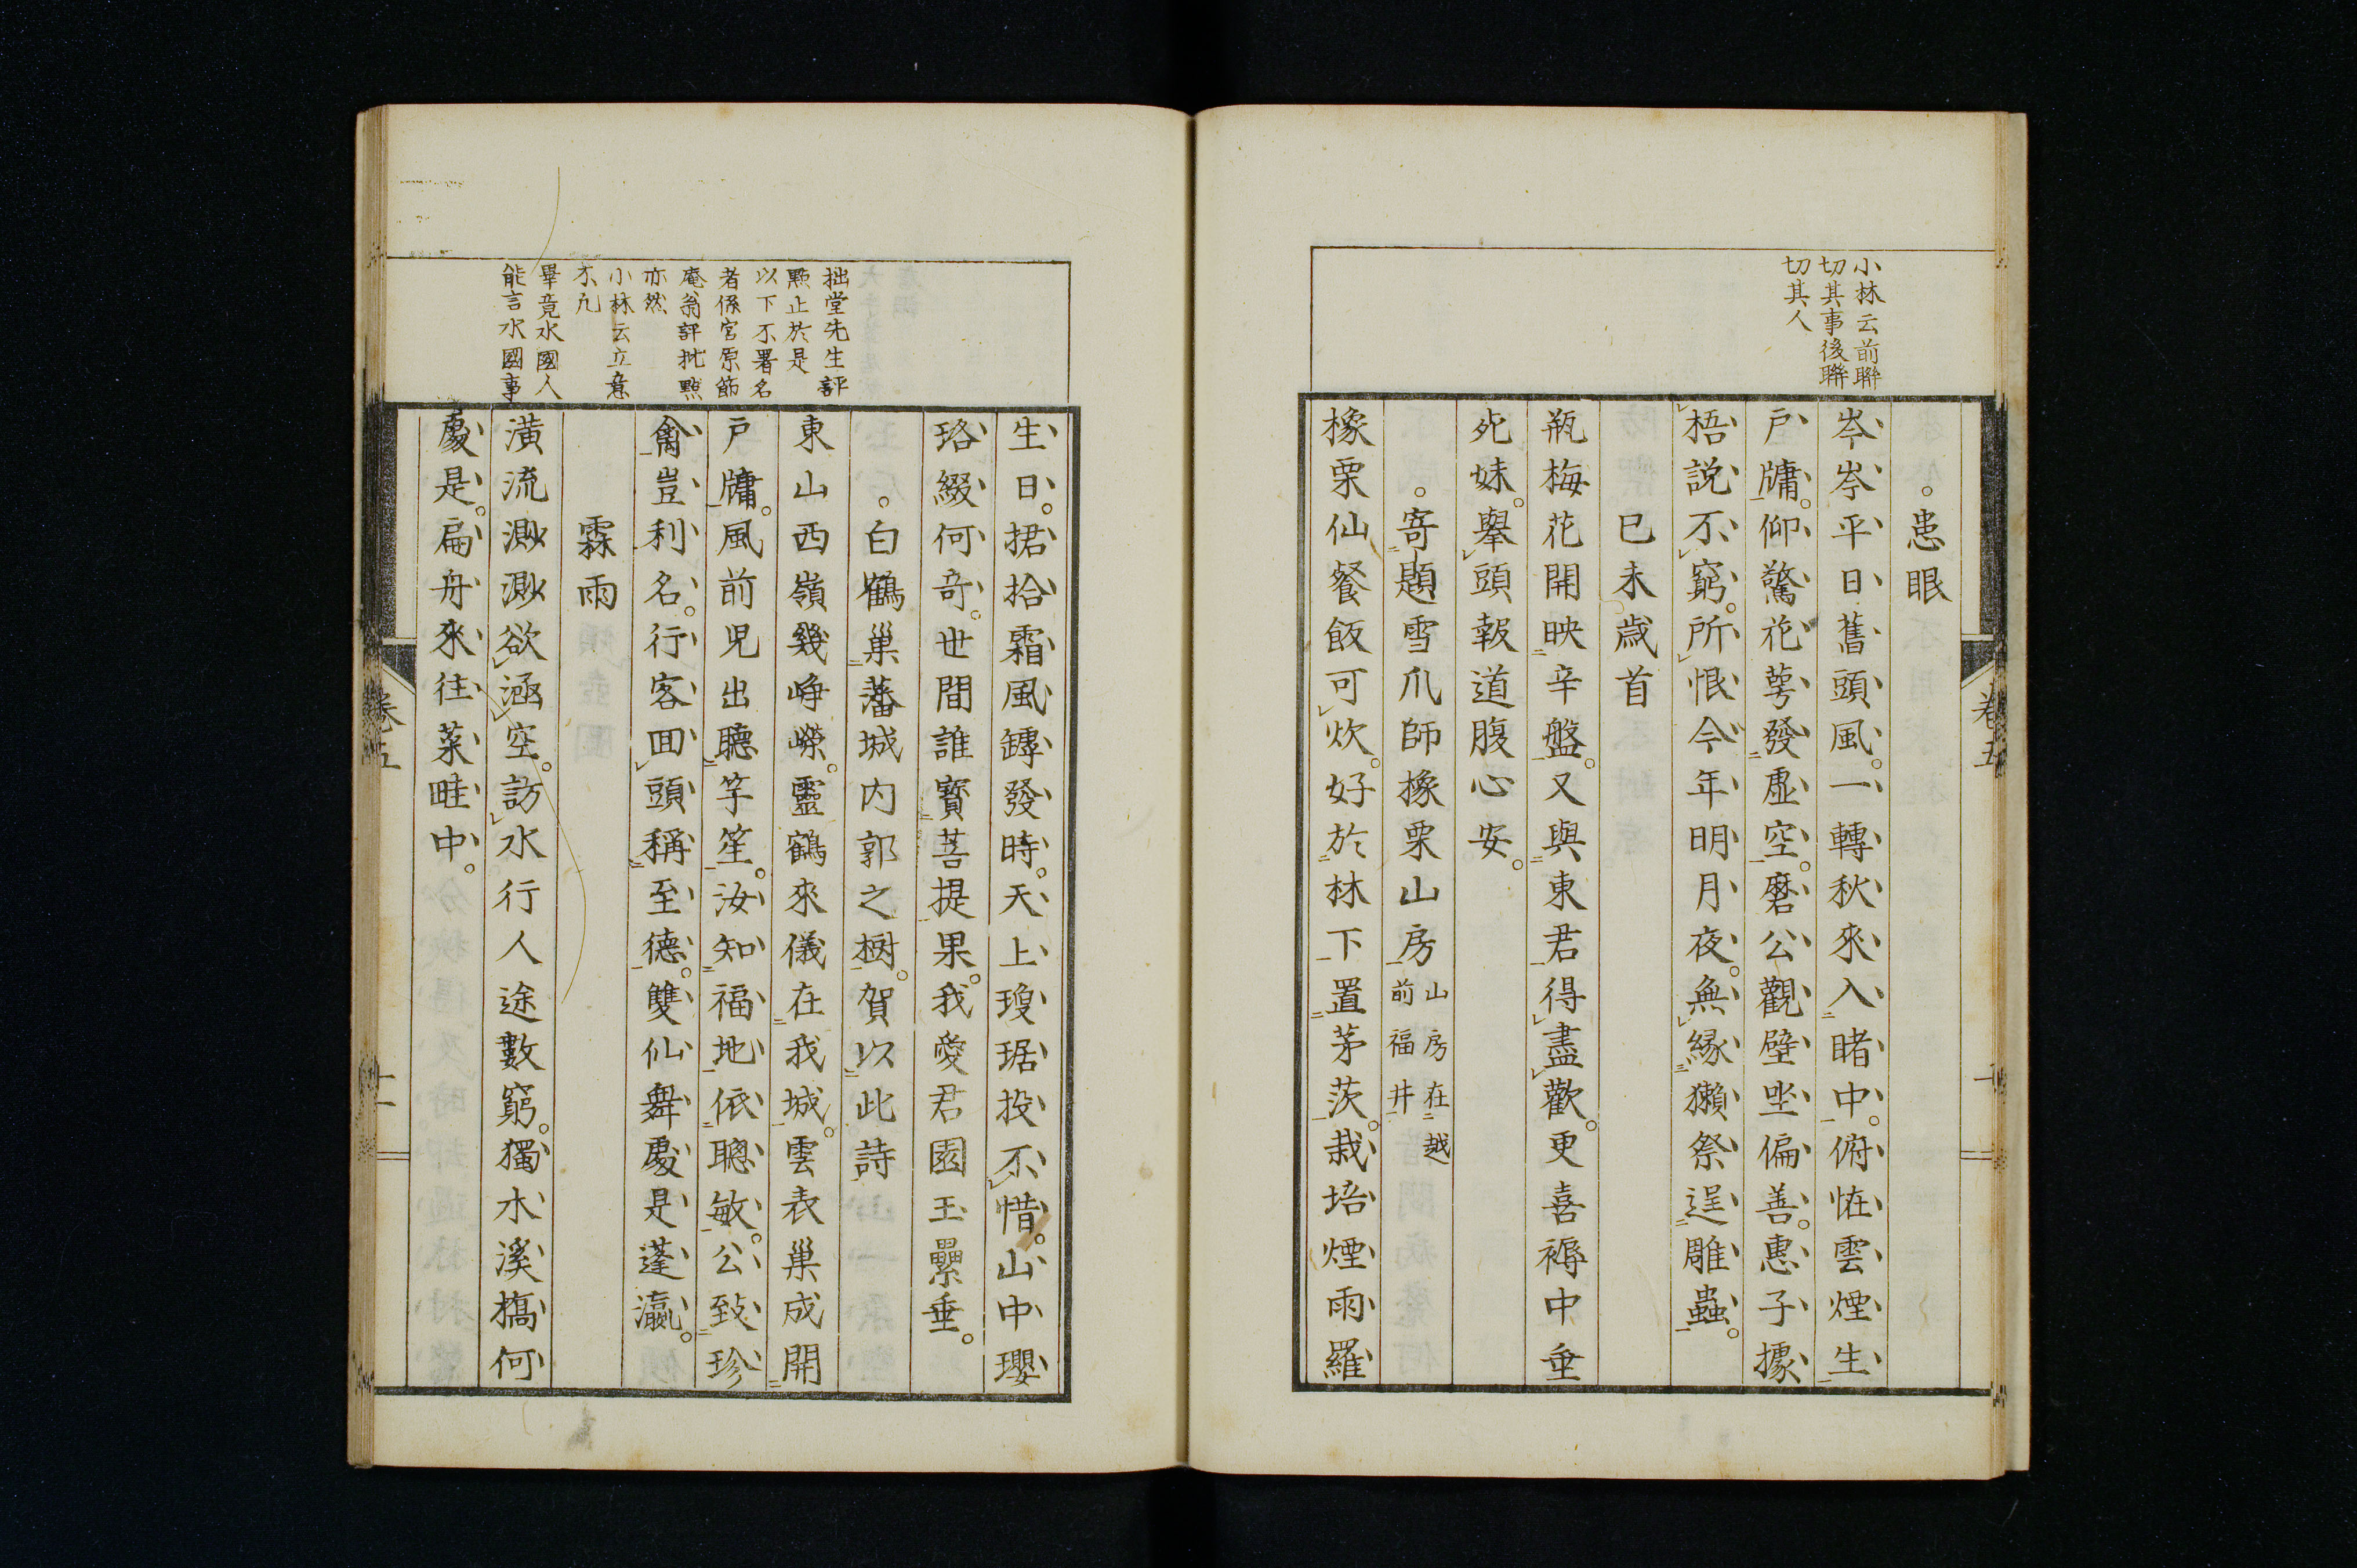 小林云前聯
切其事後聯
切其人
患眼
岑岑平日舊頭風一轉秋來入睹中俯怪雲煙生
戶牖仰驚花萼發虛空磨公觀壁坐偏善惠子據
梧説不窮所恨今年明月夜無緣獺祭逞雕蟲
已未歲首
瓶梅花開映辛盤又與東君得盡歡更喜褥中垂
死妹擧頭報道腹心安
寄題雪爪師橡栗山房 山房在越
前福井
橡栗仙餐飯可炊好於林下置茅茨栽培煙雨羅
卷五
拙堂先生評
點止於是
以下不署名
者係宮原節
庵翁評批點
亦然
小林云立意
不凡
畢竟水國人
能言水國事
生日捃拾霜風罅發時天上瓊琚投不惜山中瓔
珞綴何奇世間誰寶菩提果我愛君園玉纍垂
白鶴巢藩城内郭之樹賀以此詩
東山西嶺幾崢嶸靈鶴來儀在我城雲表巢成開
戶牖風前児出聽竽笙汝知福地依聰敏公致珍
禽豈利名行客回頭稱至德雙仙舞處是蓬瀛
霖雨
潢流㴸㴸欲涵空訪水行人途數窮獨木溪橋何
處是扁舟來往菜畦中
卷五